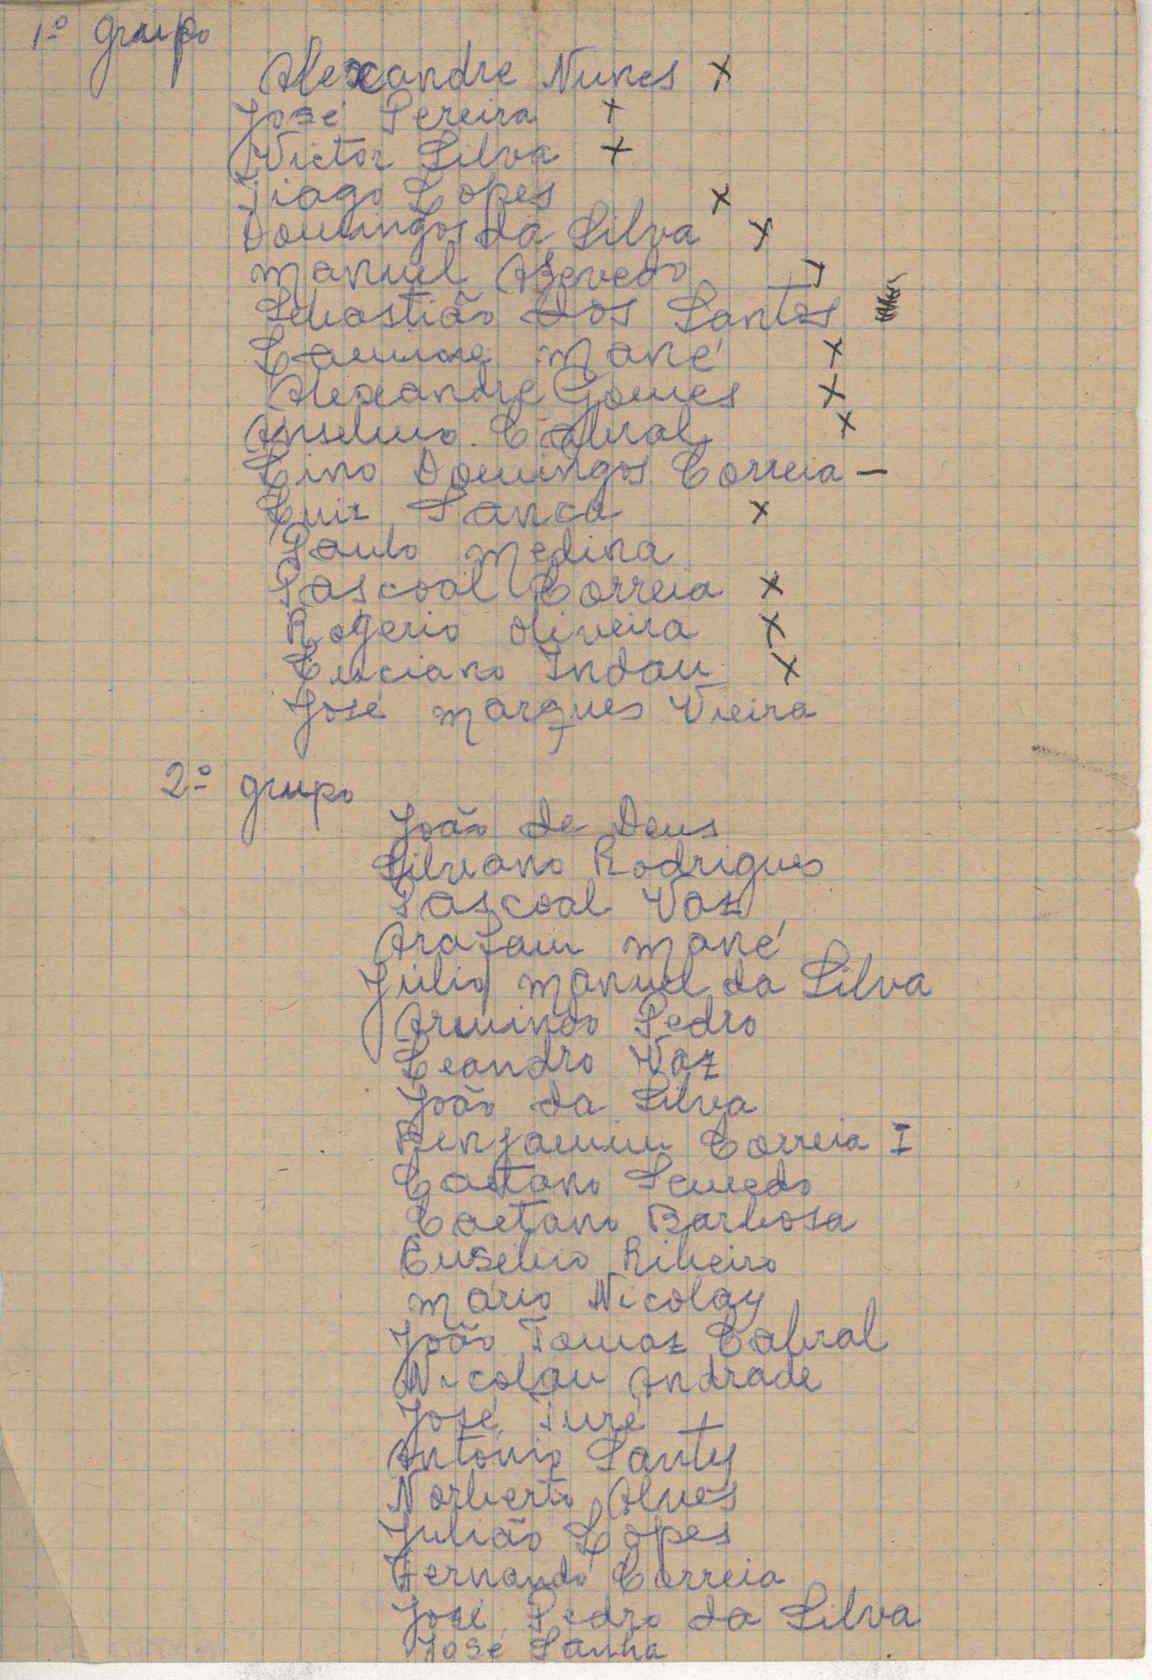 1º grupo
Alexandre Nunes x
José Pereira x
Victor Silva x
Tiago Lopes x
Domingos da Silva x
Manuel Azevedo x
Sebastião dos Santos
Mané x
Alexandre Gomes x
Anselmo Cabral x
Lino Domingos Correia -
Luiz Sanca x
Paulo Medina
Pascoal Correia x
Rogerio Oliveira x
Luciano Indau x
José Marques Vieira
2º grupo
João de Deus
Silvano Rodrigues
Pascoal Vaz
Arafam Mané
Júlio Manuel da Silva
Armindo Pedro
Leandro Vaz
João da Silva
Benjamim Correia I
Caetano Semedo
Caetano Barbosa
Eusébio Ribeiro
Mário Nicolay
João Tomaz Cabral
Nicolau Andrade
José Turé
António Santy
Norberto Alves
Julião Lopes
Fernando Correia
José Pedro da Silva
José Sanha